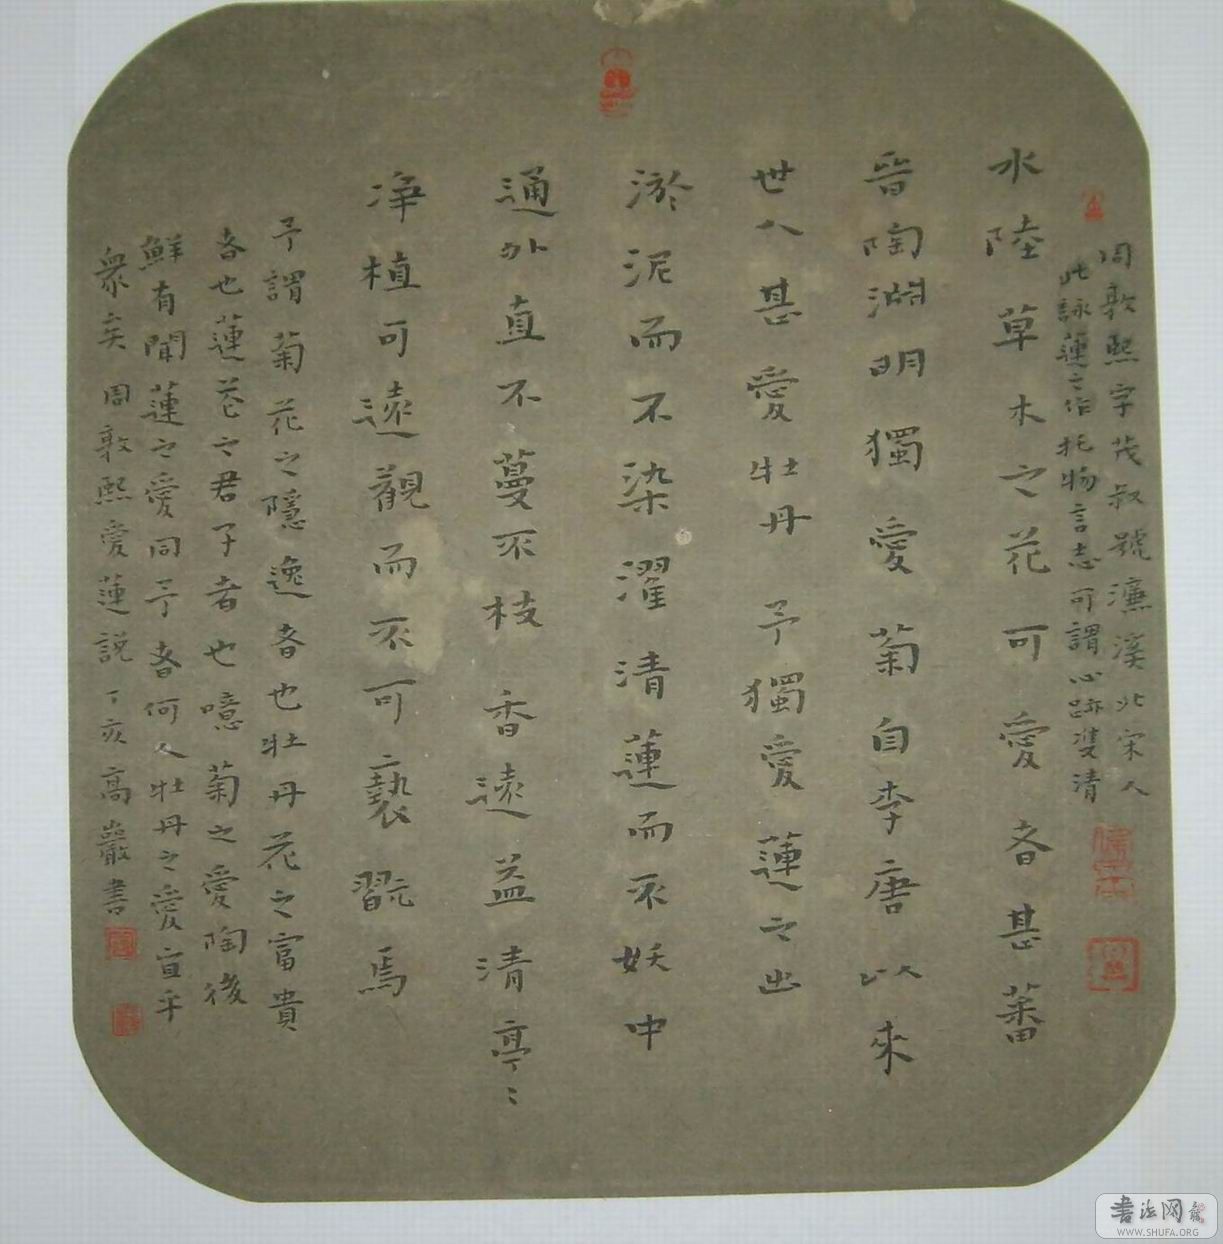 周敦熙字茂叔號濂溪北宋人
此詠蓮之作托物言志可謂心跡雙清
水陸草木之花可愛者甚蕃
晉陶淵明獨愛菊自李唐以來
世人甚愛牡丹予獨愛蓮之出
淤泥而不染濯清蓮而不妖中
通外直不蔓不枝香遠益清亭〻
净植可遠觀而不可褻翫焉
予謂菊花之隱逸者也牡丹花之富貴
者也蓮花之君子者也噫菊之愛陶後
鮮有聞蓮之愛同予者何人牡丹之愛宜乎
衆矣周敦熙愛蓮説丁亥高巖書
書法网
WWW.SHUFA.ORG